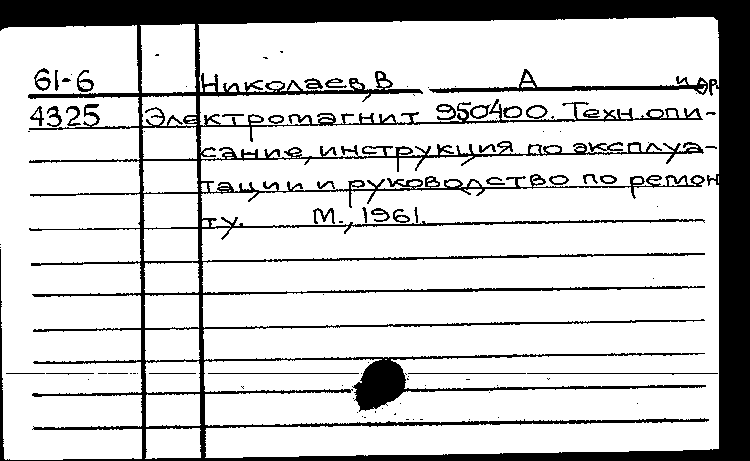 61-6 Николаев, В А и др
4325 Электромагнит 950400. Техн. опи-
сание, инструкция по эксплуа-
тации и руководство по ремон
ту. М., 1961.